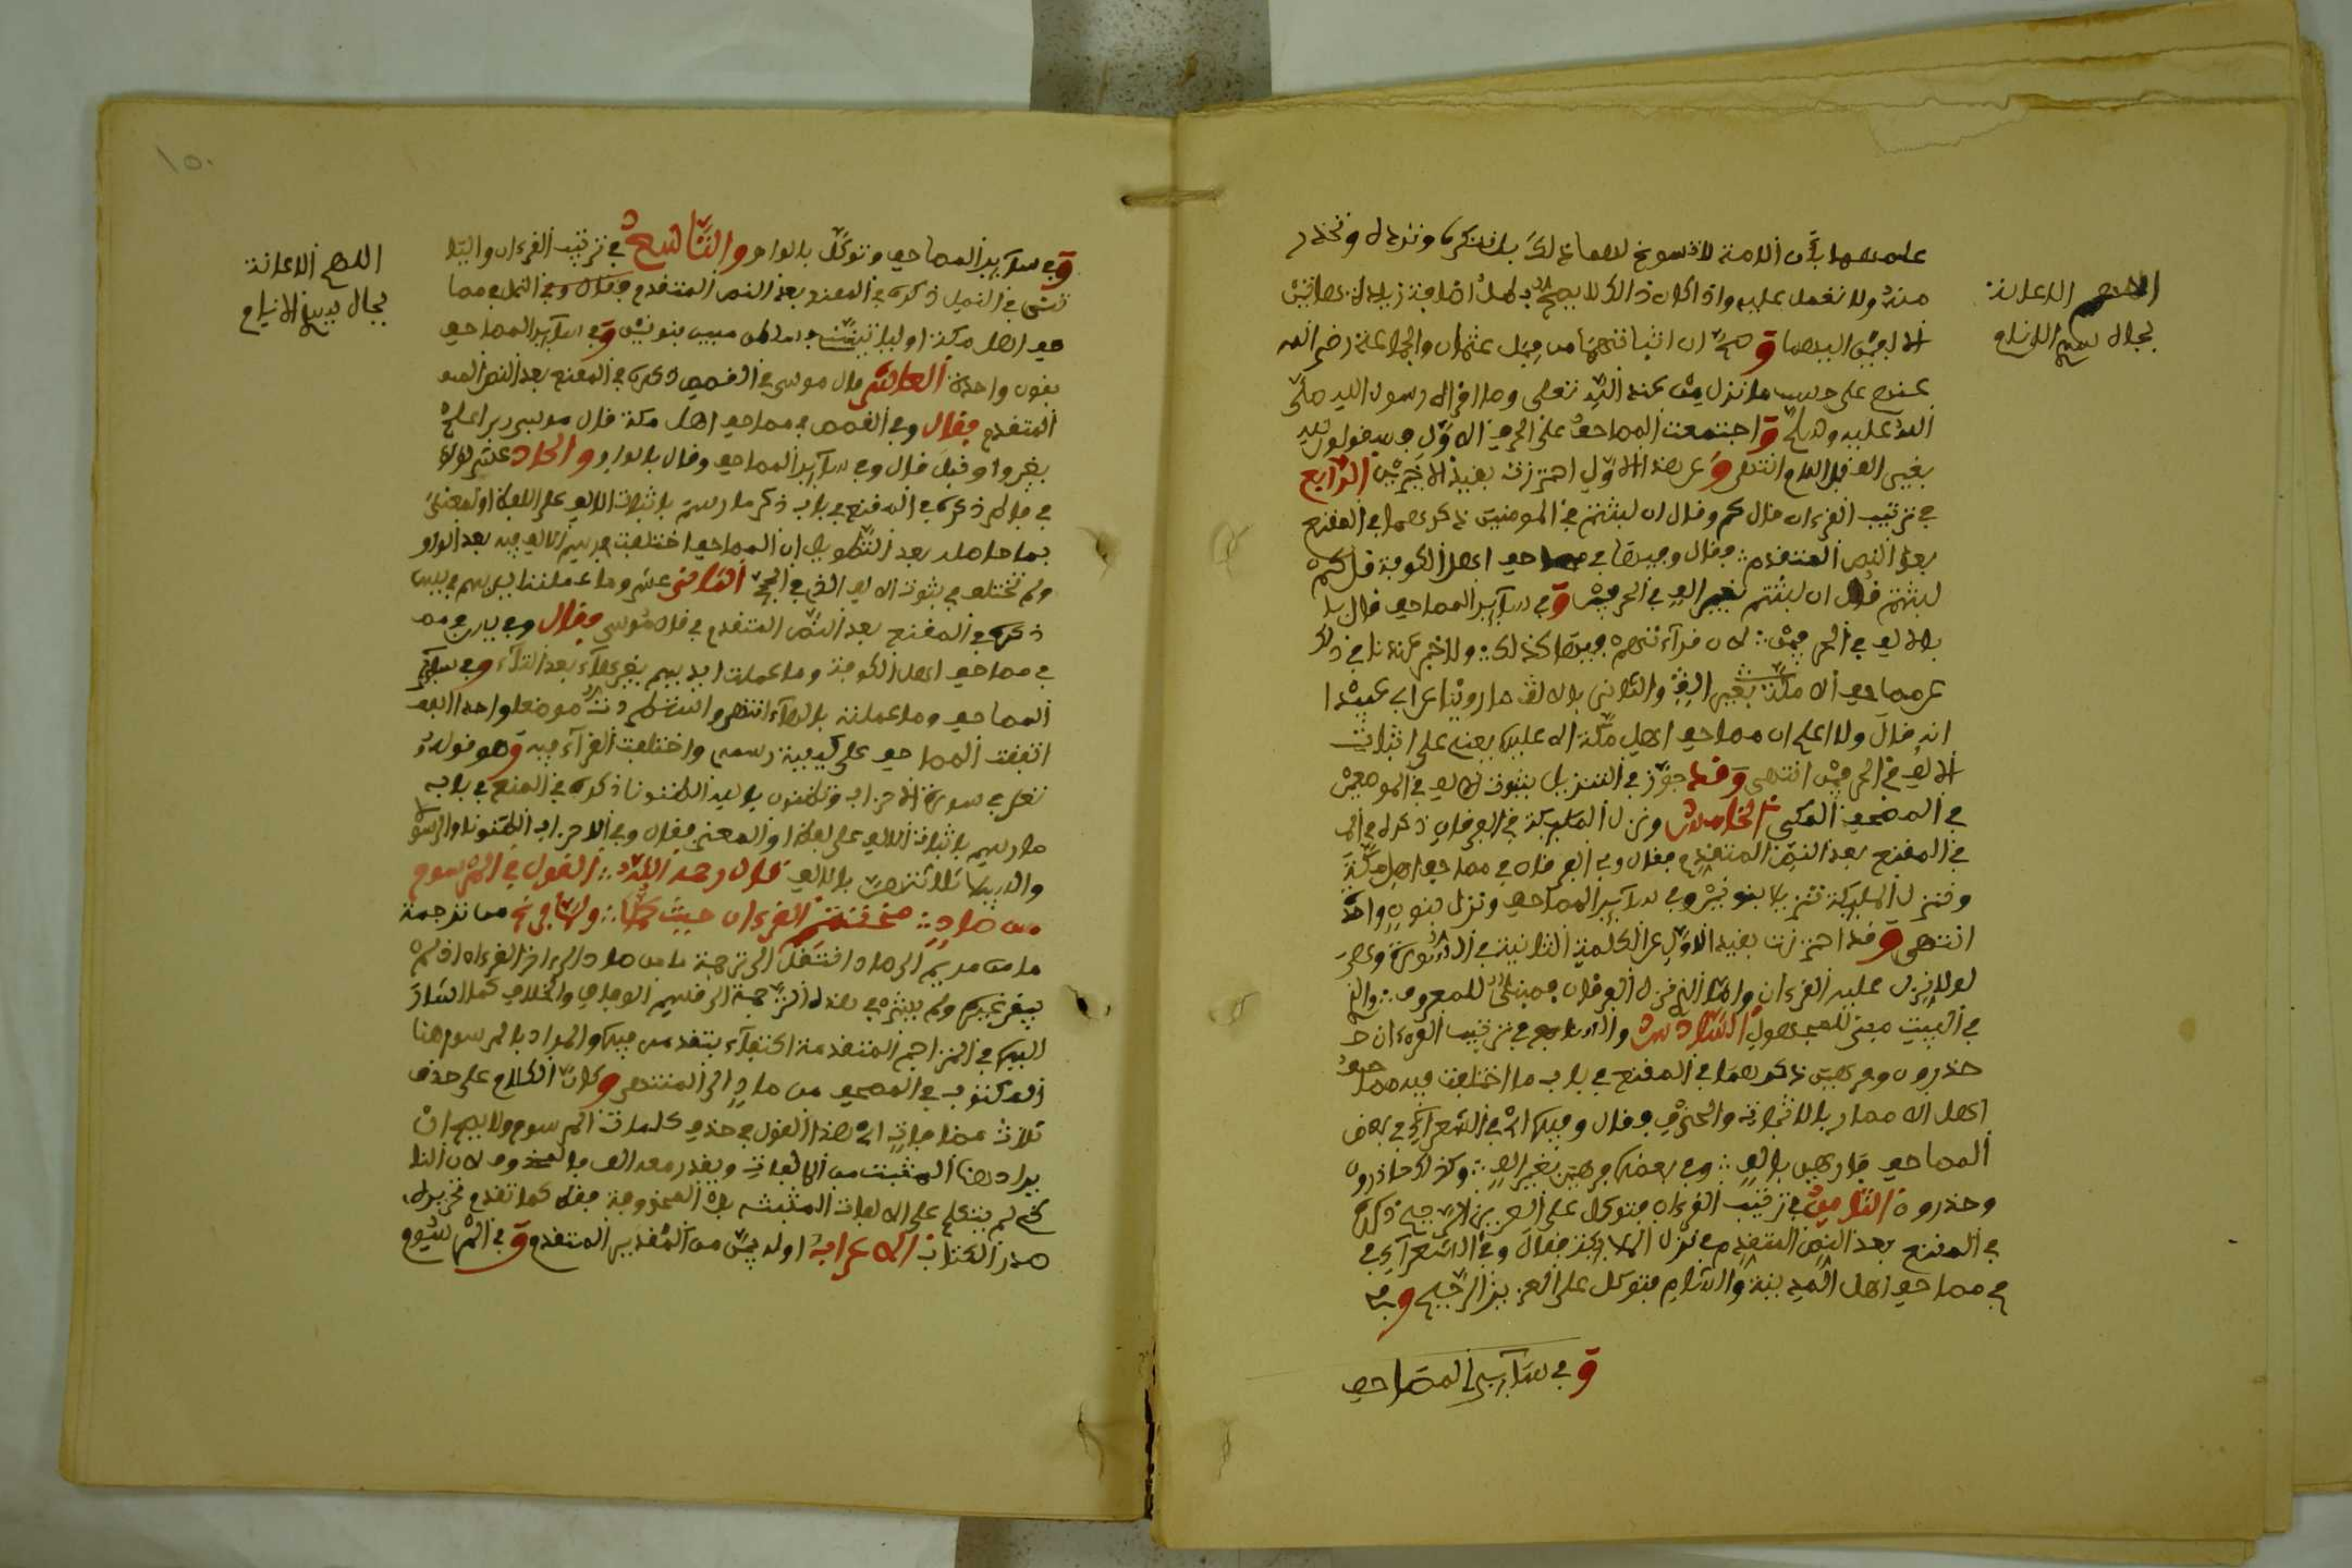 علمهما بأن الامة لا تسوغ لاحد ذلك بل تنكره وترده وتحذر
منه ولا تعمل عليه واذا كان ذالك لا يصح بطل اضافة زيادة هاتين
الالفين اليهما وصح ان اثباتهما من قبل عثمان والجماعة رضي الله
عنهم على حسب ما نزل من عند الله تعلى وما اقراه رسول الله صلى
الله عليه وسلم واجتمعت المصاحف على الحرف الاول سيقولون لله
بغير الف قبل اللام انتهى وعن هذا الاول احترزت بقيد الاخيرين الرابع
في ترتيب القرءان قال كم وقال ان لبثتم في المومنين ذكرهما في المقنع
بعد النص المتقدم فقال وفيها في مصاحف اهل الكوفة قل كم
لبثتم قل ان لبثتم بغير الف في الحرفين وفي سآئر المصاحف قال
بالالف في الحرفين لان قرآءتهم فيهما كذلك ولا خبر عندنا في ذلك
عن مصاحف اهل مكة بغير الف والثاني بالالف ما روينا عن ابي عبيد
انه قال ولا اعلم ان مصاحف اهل مكة الا عليها يعني على اثبات
الالف في الحرفين انتهى وقد جوز في التنزيل ثبوت الالف في الموضعين
في المصحف المكي الخامس ونزل المليكة في الفرقان ذكره
في المقنع بعد النص المتقدم فقال وفي الفرقان في مصاحف اهل مكة
وننزل المليكة تنزيلا بنونين وفي سآئر المصاحف ونزل بنون واحدة
انتهى وقد احترزت بقيد الاول عن الكلمة الثانية في السورة وهي
لولا نزل عليه القرءان واما الذي نزل الفرقان فمبني للمعروف والذي
في البيت مبني للمجهول السادس والسابع في ترتيب القرءان
حذرون وفرهين ذكرهما في المقنع في باب ما اختلفت فيه مصاحف
اهل الامصار بالاثبات والحذف فقال وفيها اي في الشعرآء في بعض
المصاحف فارهين بالف وفي بعضها فرهين بغير الف وكذلك حاذرون
وحذرون الثامن في ترتيب القرءان فتوكل على العزيز الرحيم ذكره
في المقنع بعد النص المتقدم في نزل الملايكة فقال وفي الشعرآء في
في مصاحف اهل المدينة والشام فتوكل على العزيز الرحيم وفي
وفي سآئر المصاحف
اللهم الاعانة
بجاه سيد الانام
وفي سآئر المصاحف وتوكل بالواو والتاسع في ترتيب القرءان
في النمل ذكره في المقنع بعد النص المتقدم فقال وفي النمل في مصا
حف اهل مكة او لياتينني بسلطن مبين بنونين وفي سآئر المصاحف
بنون واحدة العاشر قال موسى في القصص ذكره في المقنع بعد النص
المتقدم فقال وفي القصص في مصاحف اهل مكة قال موسى ربي اعلم
بغير واو قبل قال وفي سآئر المصاحف وقال بالواو والحاد عشر لؤلؤا
في فاطر ذكره في المقنع في باب ذكر ما رسم باثبات الالف على اللفظ او المعنى
بما حاصله بعد التطويل ان المصاحف اختلفت في رسم الالف فيه بعد الواو
ولم تختلف في ثبوت الالف الذي في الحج الثاني عشر وما عملته ايديهم في يس
ذكره في المقنع بعد النص المتقدم في قال موسى فقال وفي يس في مصـ
في مصاحف اهل الكوفة وما عملت ايديهم بغير هآء بعد التآء وفي سآئر
المصاحف وما عملته بالهآء انتهى والنظم زدت موضعا واحدا
اتفقت المصاحف على كيفية رسمه واختلفت القرآء فيه وهو قوله
تعلى في سورة الاحزاب وتظنون بالله الظنونا ذكره في المقنع في باب
ما رسم باثبات الالف على اللفظ او المعنى فقال وفي الاحزاب الظنونا والرسولا
والسبيلا ثلاثتهن بالالف قال رحمه الله القول في المرسوم
من صاد مختتم القرءان حيث كملا ولما فرغ من ترجمة
ما من مريم الى صاد انتقل الى ترجمة ما من صاد الى اخر القرءان اذ لم
يبق غيرها ولم ينبه في هذه الترجمة الى قسمي الوفاق والخلاف كما اشار
اليها في التراجم المتقدمة اكتفآء بتقدمه فيها والمراد بالمرسوم هنا
المكتوب في المصحف من صاد الى المنتهى وكان الكلام على حذف
ثلاث مضافات اي هذا القول في حذف كلمات المرسوم ولا يصح ان
يراد هنا المثبت من الالفات ويقدر معه الف المحذوف لان النا
ظم لم يتكلم على الالفات المثبتة بل المحذوفة فقط كما تقدم تحريره
صدر الكتاب الاعراب اوله بين من التقدير المتقدم وفي المرسوم
اللهم الاعانة
بجاه سيد الانام
١٥٠